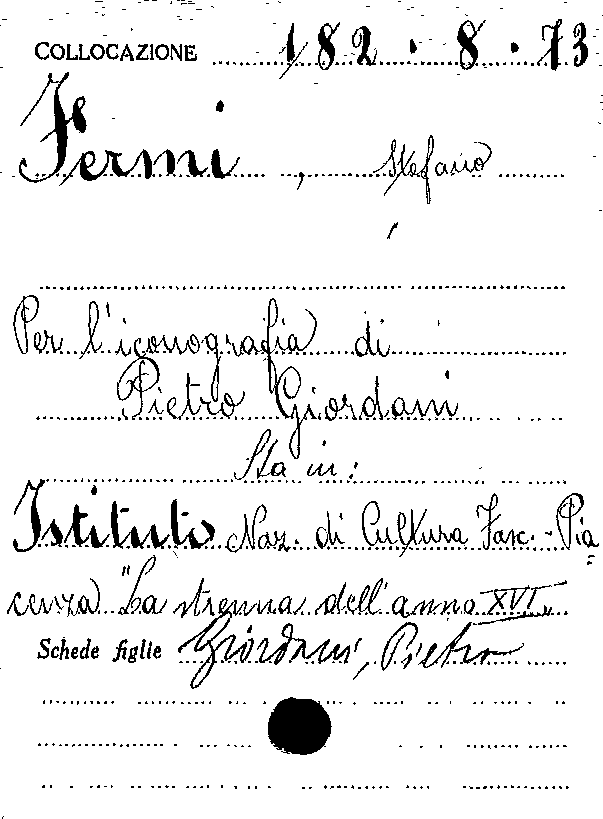 COLLOCAZIONE 182.8.73
Fermi, Stefano
Per l'iconografia di
Pietro Giordani
Sta in:
Istituto Naz. di Cultura Fasc. - Pia=
cenza "La strenna dell'anno XVI"
Schede figlie Giordani, Pietro